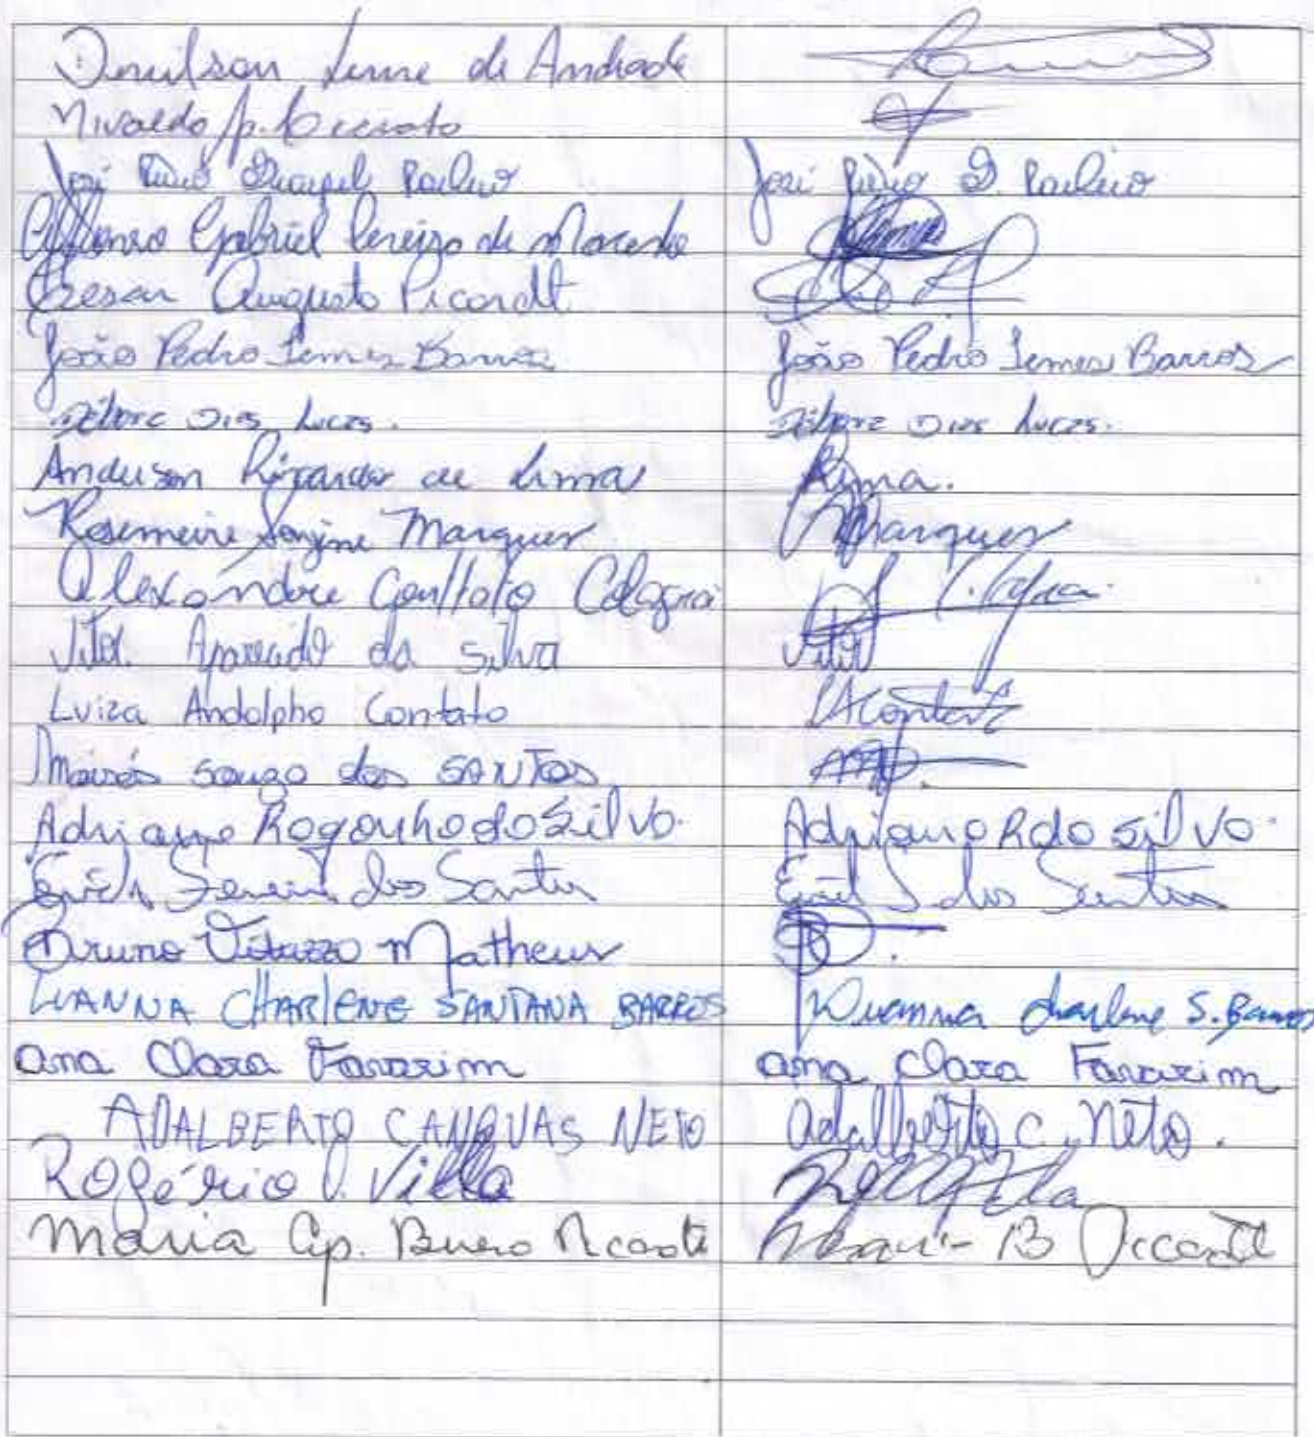 Denilson Leme de Andrade
Nivaldo Ap. Ceccato
José Rangel Paulino José D. Paulino
Affonso Gabriel Pereira de Macedo
Cesar Augusto Picardt
João Pedro Lemes Barros João Pedro Lemes Barros
Débora Dias Lucas. Débora Dias Lucas.
Anderson Ricardo de Lima Lima.
Rosemeire Marques Marques
Alexandre Colagna
Vitor Aparecido da Silva Vitor
Luiza Andolpho Contato LAContato
Moisés Souza dos SANTOS
Adriano Rogonho do Silvo. Adriano R do Silvo.
Erick Ferreira dos Santos dos Santos
Bruno Matheus
LUANNA CHARLENE SANTANA BARROS Luanna Charlene S. Barros
Ana Clara Favarim Ana Clara Favarim
ADALBERTO CANOVAS NETO Adalberto C. Neto.
Rogério Villa
Maria Ap. Bueno Picardt Maria B Piccardt